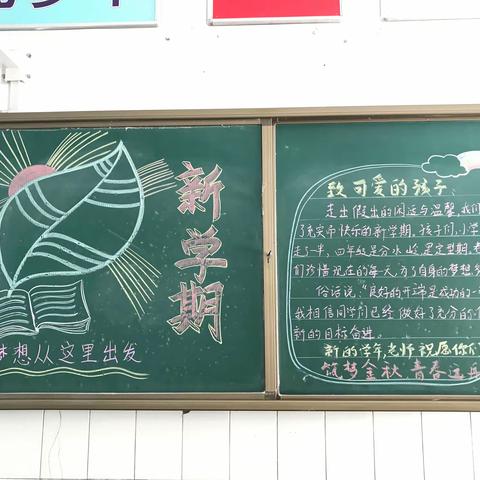 新学期
梦想从这里出发
致可爱的孩子:
走出假出的闲适与温馨,我们
了充实而快乐的新学期。孩子们,小学
走了一半,四年级是分水岭,是定型期,
们珍惜现在的每一天,为了自身的梦想
俗话说:“良好的开端是成功的一
我相信同学们已经做好了充分的
新的目标奋进。
新的学年,老师祝愿你们
筑梦金秋,青春远